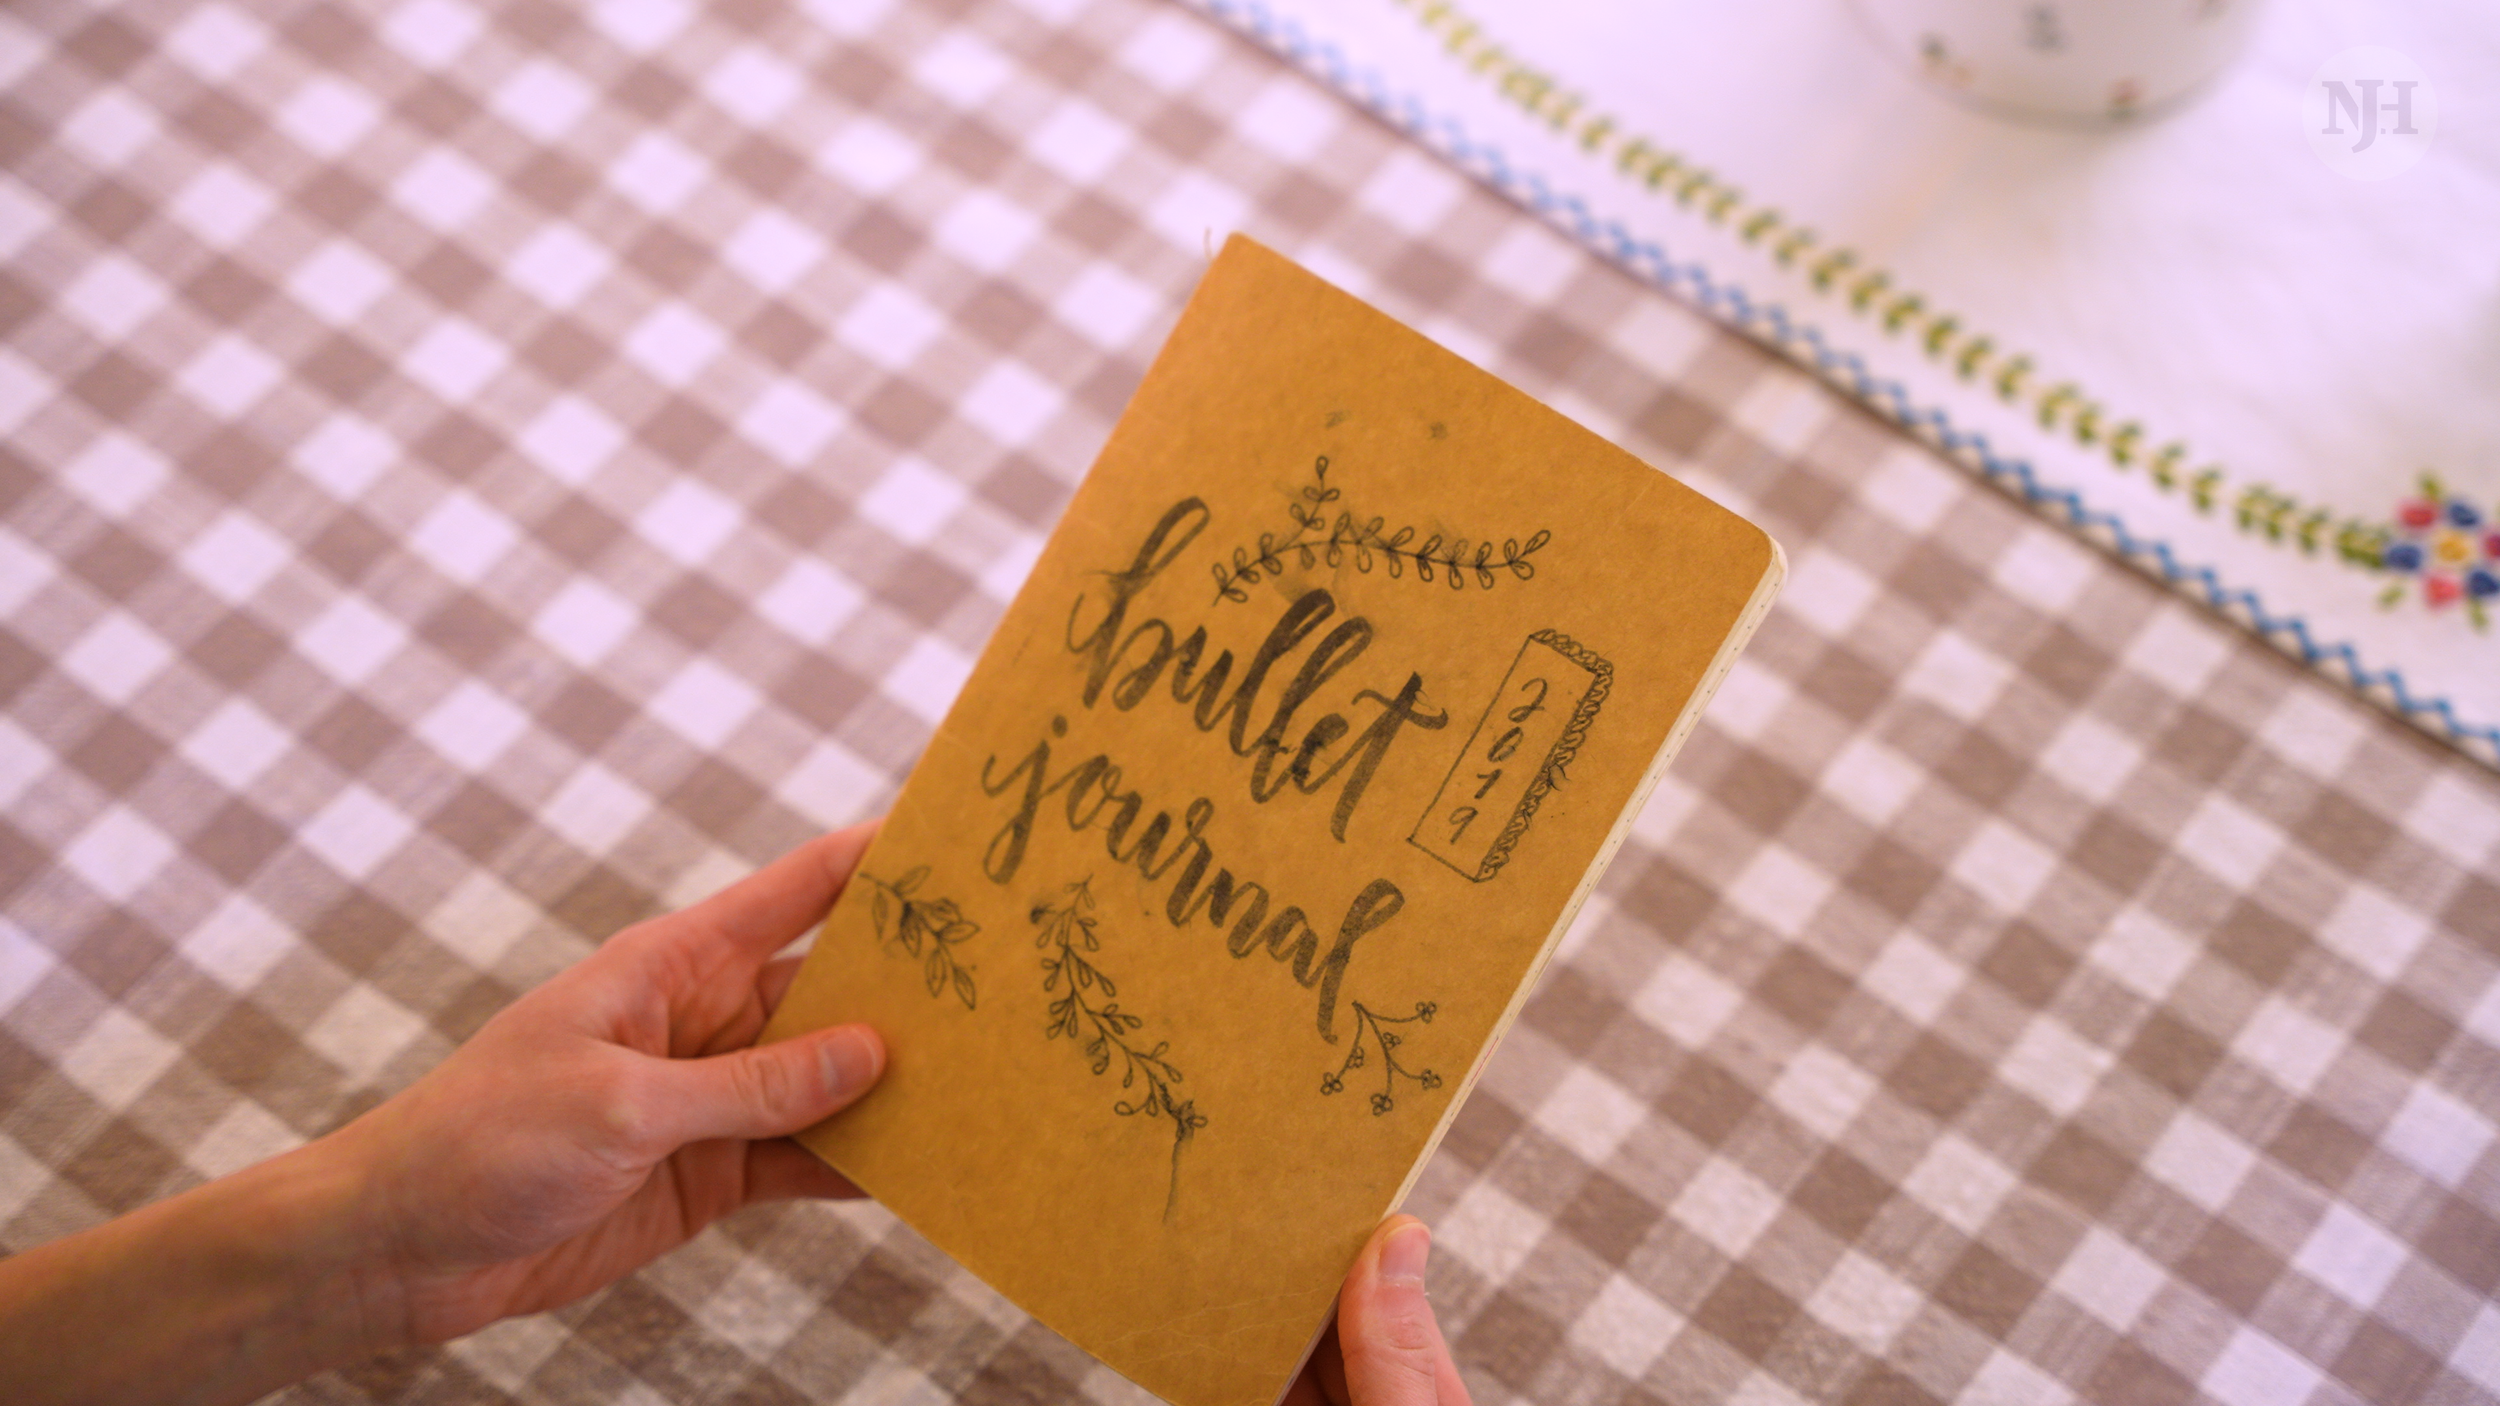 bullet
journal
2019
NJH